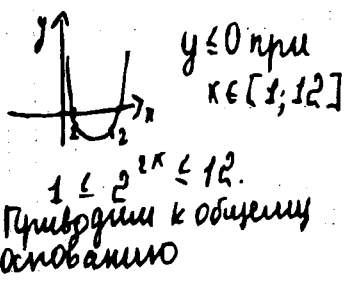 y
y ≤ 0 при
x ∈ [1; 12]
x
1 2
1 ≤ 2^{2x} ≤ 12.
Приводим к общему
основанию